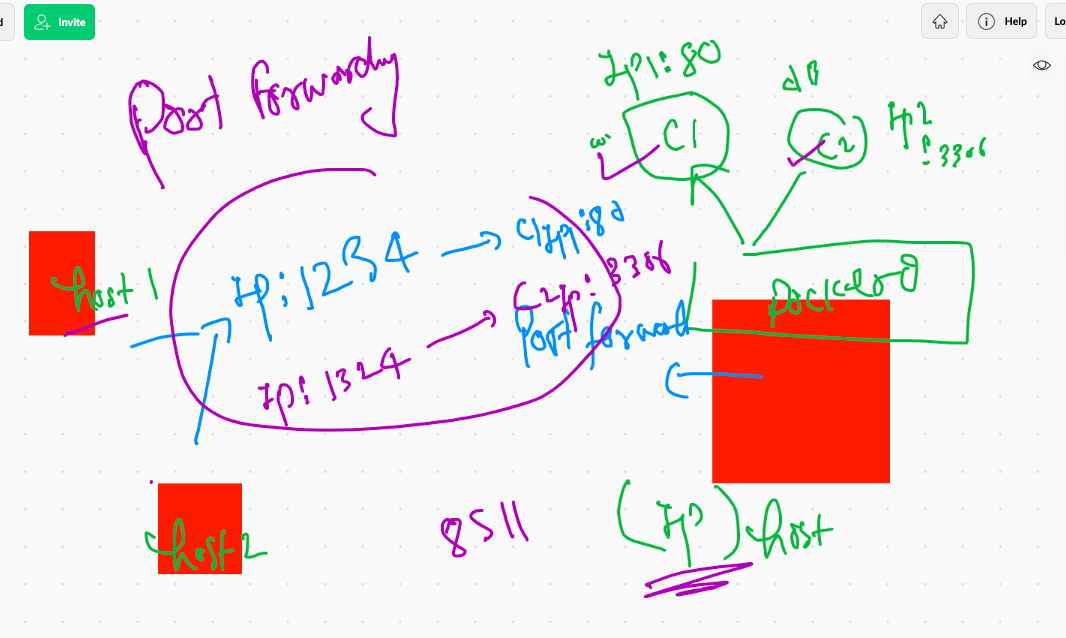 Invite
Help
Lo
Port forwarding
Ip1:80
dB
C1
C2
Ip2
:3306
host 1
Ip:1234
C1Ip:80
C2Ip:3306
Port forward
Ip:1324
Dockerd
host2
8511
(Ip) host